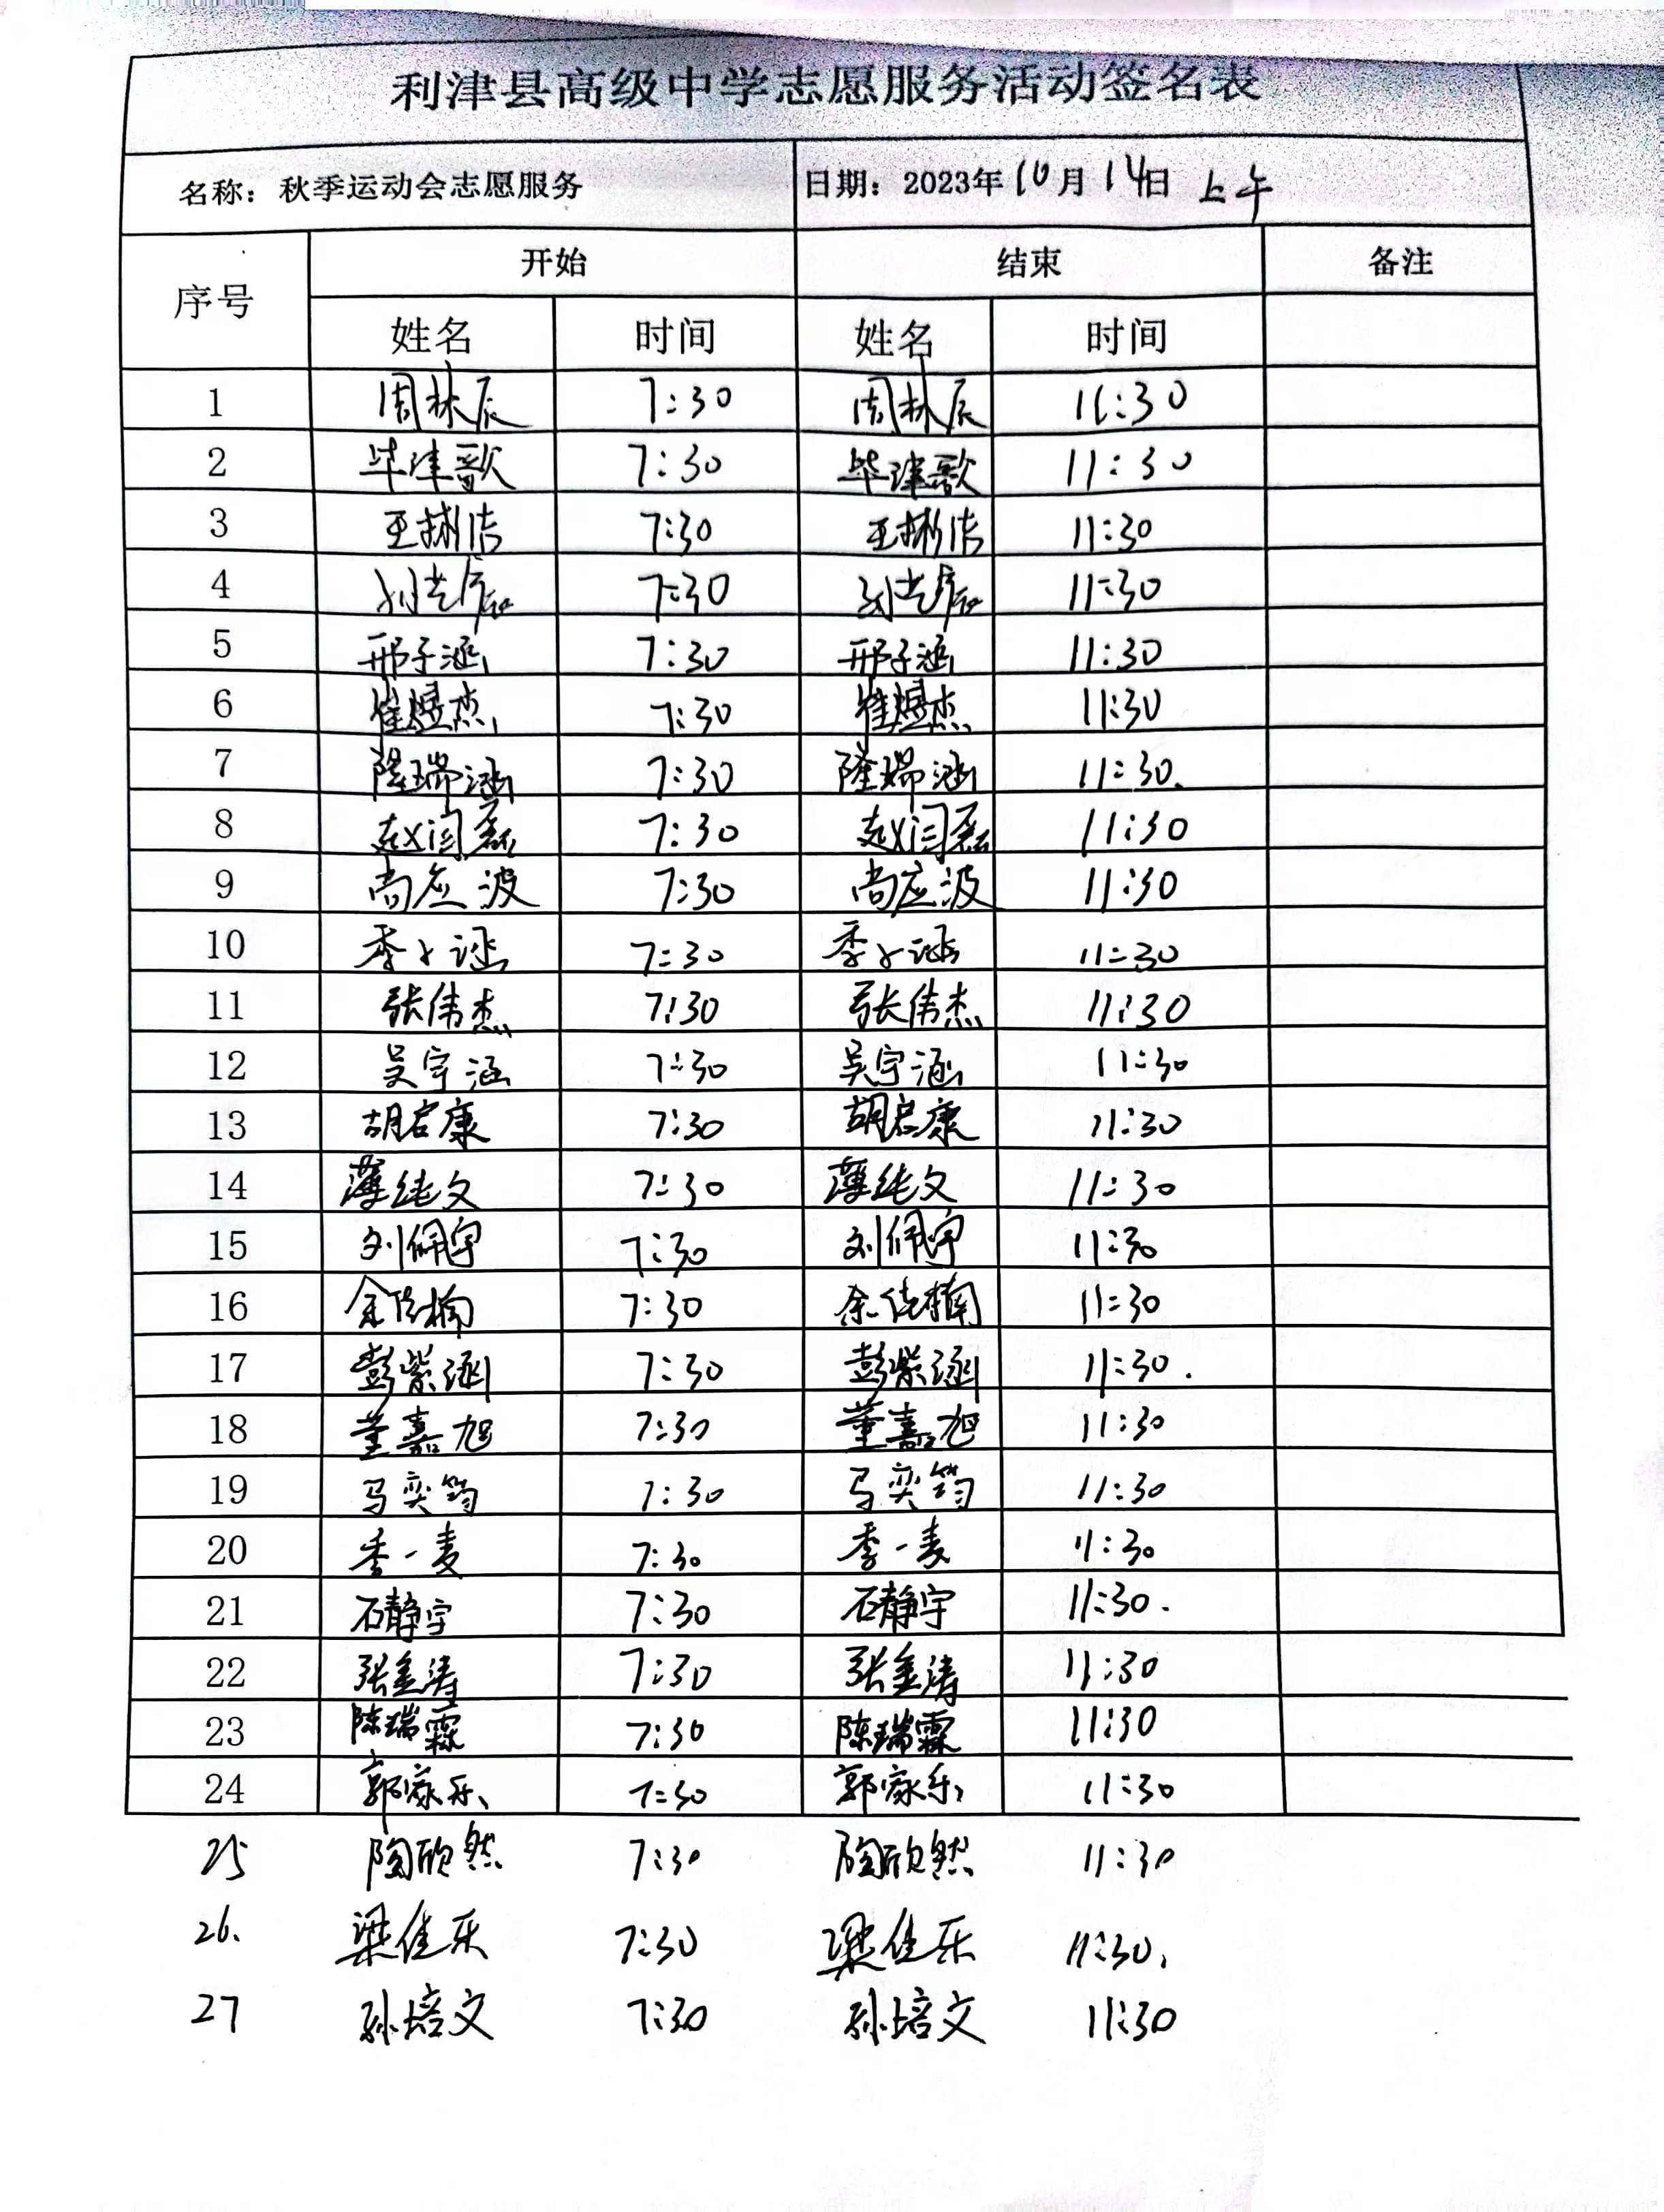 利津县高级中学志愿服务活动签名表
名称：秋季运动会志愿服务 日期：2023年10月14日 上午
序号 开始 结束 备注
姓名 时间 姓名 时间
1 周林辰 7:30 周林辰 11:30
2 毕津歌 7:30 毕津歌 11:30
3 王彬洁 7:30 王彬洁 11:30
4 刘芸辰 7:30 刘芸辰 11:30
5 邢子涵 7:30 邢子涵 11:30
6 崔煜杰 7:30 崔煜杰 11:30
7 隆瑞涵 7:30 隆瑞涵 11:30.
8 赵闫磊 7:30 赵闫磊 11:30
9 尚应波 7:30 尚应波 11:30
10 7:30 11:30
11 张伟杰 7:30 张伟杰 11:30
12 吴宇涵 7:30 吴宇涵 11:30
13 胡启康 7:30 胡启康 11:30
14 薄纯文 7:30 薄纯文 11:30
15 刘佩宇 7:30 刘佩宇 11:30
16 余佳楠 7:30 余佳楠 11:30
17 彭紫涵 7:30 彭紫涵 11:30.
18 董嘉旭 7:30 董嘉旭 11:30
19 马奕筠 7:30 马奕筠 11:30
20 季一麦 7:30 季一麦 11:30
21 石静宇 7:30 石静宇 11:30.
22 张金涛 7:30 张金涛 11:30
23 陈瑞霖 7:30 陈瑞霖 11:30
24 郭家乐 7:30 郭家乐 11:30
25 陶欣然 7:30 陶欣然 11:30
26. 梁佳乐 7:30 梁佳乐 11:30.
27 孙培文 7:30 孙培文 11:30